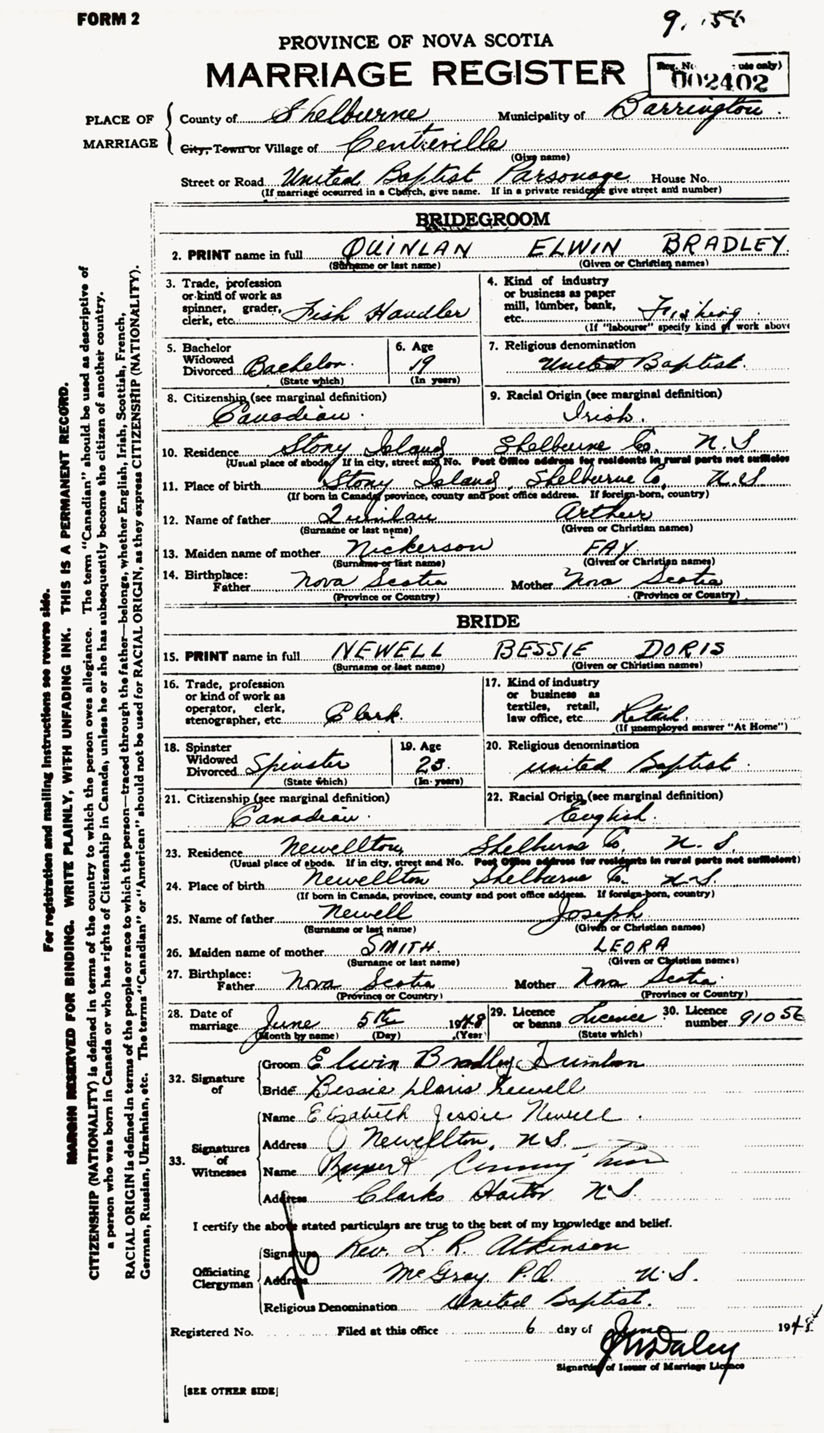 FORM 2
PROVINCE OF NOVA SCOTIA
MARRIAGE REGISTER
Reg. No. use only)
002402
PLACE OF MARRIAGE
County of Shelburne Municipality of Barrington
City, Town or Village of Centreville
(Give name)
Street or Road United Baptist Parsonage House No.
(If marriage occurred in a Church, give name. If in a private residence give street and number)
BRIDEGROOM
2. PRINT name in full QUINLAN ELWIN BRADLEY
(Surname or last name) (Given or Christian names)
3. Trade, profession or kind of work as spinner, grader, clerk, etc. Fish Handler
4. Kind of industry or business as paper mill, lumber, bank, etc. Fishing
(If "labourer" specify kind of work above
5. Bachelor Widowed Divorced Bachelor
(State which)
6. Age 19
(In years)
7. Religious denomination
United Baptist
8. Citizenship (see marginal definition)
Canadian
9. Racial Origin (see marginal definition)
Irish
10. Residence Stony Island Shelburne Co. N.S
(Usual place of abode. If in city, street and No. Post Office address for residents in rural parts not sufficient
11. Place of birth Stony Island, Shelburne Co, N.S
(If born in Canada, province, county and post office address. If foreign-born, country)
12. Name of father Quinlan Arthur
(Surname or last name) (Given or Christian names)
13. Maiden name of mother Nickerson FAY
(Surname or last name) (Given or Christian names)
14. Birthplace: Father Nova Scotia Mother Nova Scotia
(Province or Country) (Province or Country)
BRIDE
15. PRINT name in full NEWELL BESSIE DORIS
(Surname or last name) (Given or Christian names)
16. Trade, profession or kind of work as operator, clerk, stenographer, etc Clerk
17. Kind of industry or business as textiles, retail, law office, etc. Retail
(If unemployed answer "At Home")
18. Spinster Widowed Divorced Spinster
(State which)
19. Age
(In years)
20. Religious denomination
United Baptist
21. Citizenship (see marginal definition)
Canadian
22. Racial Origin (see marginal definition)
English
23. Residence Newellton, Shelburne Co, N.S.
(Usual place of abode. If in city, street and No. Post Office address for residents in rural parts not sufficient)
24. Place of birth Newellton Shelburne Co. N.S
(If born in Canada, province, county and post office address. If foreign-born, country)
25. Name of father Newell Joseph
(Surname or last name) (Given or Christian names)
26. Maiden name of mother SMITH LEORA
(Surname or last name) (Given or Christian names)
27. Birthplace: Father Nova Scotia Mother Nova Scotia
(Province or Country) (Province or Country)
28. Date of marriage June 5th 1948
(Month by name) (Day) (Year)
29. Licence or banns Licence
(State which)
30. Licence number 91056
32. Signature of
Groom Elwin Bradley Quinlan
Bride Bessie Doris Newell
33. Signatures of Witnesses
Name Elizabeth Jessie Newell
Address Newellton, N.S.
Name Rupert
Address Clarks Harbor N.S.
I certify the above stated particulars are true to the best of my knowledge and belief.
Officiating Clergyman
Signature Rev. L. R. Atkinson
Address McGray P.O. N.S.
Religious Denomination United Baptist.
Registered No. Filed at this office 6 day of June 1948
Signature of Issuer of Marriage Licence
[SEE OTHER SIDE]
For registration and mailing instructions see reverse side.
MARGIN RESERVED FOR BINDING. WRITE PLAINLY, WITH UNFADING INK. THIS IS A PERMANENT RECORD.
CITIZENSHIP (NATIONALITY) is defined in terms of the country to which the person owes allegiance. The term "Canadian" should be used as descriptive of
a person who was born in Canada or who has rights of Citizenship in Canada, unless he or she has subsequently become the citizen of another country.
RACIAL ORIGIN is defined in terms of the people or race to which the person—traced through the father—belongs, whether English, Irish, Scottish, French,
German, Russian, Ukrainian, etc. The terms "Canadian" or "American" should not be used for RACIAL ORIGIN, as they express CITIZENSHIP (NATIONALITY).